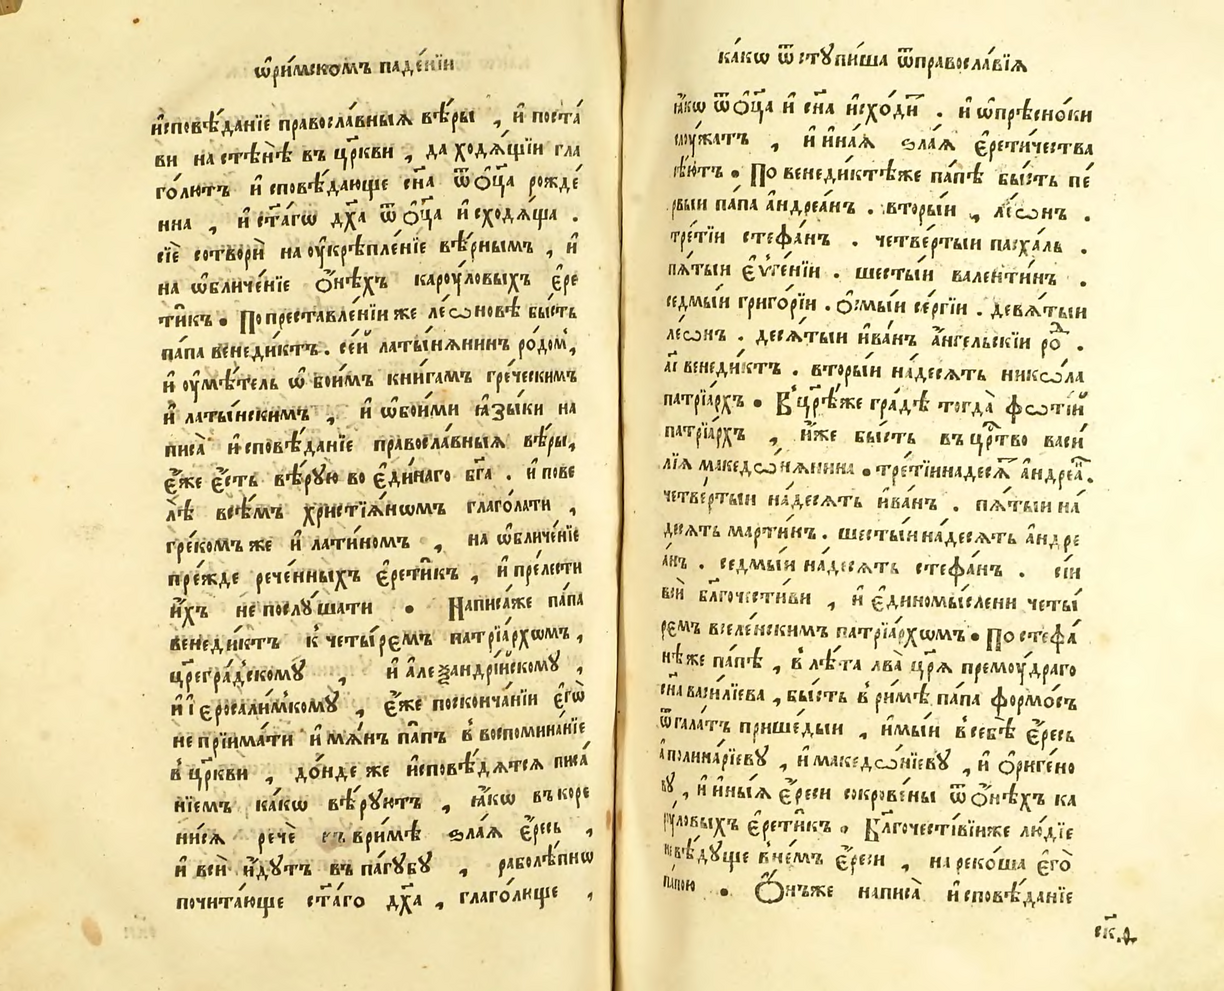 ѡ҆ри́мскомъ паде́нїи
и҆сповѣ́данїе правосла́вныѧ вѣ́ры , и҆ поста́
ви на стѣ́нѣ въ цр҃кви , да ходѧ́щїи гла
го́лютъ и҆ сповѣ́дающе сн҃а ѿ о҆ц҃а рожде́
нна , и҆ ст҃а́гѡ дх҃а ѿ о҆ц҃а и҆ схо́дѧща .
сїѐ сотворѝ на оу҆крѣпле́нїе вѣ́рнымъ , и҆
на ѡ҆бличе́нїе о҆́нѣхъ кароу́ловыхъ є҆ре
ти̑къ . По преставле́нїи же ле́ѡновѣ бы́сть
па́па венеди́ктъ . се́й латы́нѧнинъ ро́дом̾ ,
и҆ оу҆мѣ́тель ѡ҆ бои́мъ кни́гамъ гре́ческимъ
и҆ латы́нскимъ , и҆ ѡ҆бои́ми ꙗ҆зы́ки на
писа̀ и҆сповѣ́данїе правосла́вныѧ вѣ́ры ,
є҆́же є҆́сть вѣ́рую во є҆ди́наго бг҃а . и҆ пове
лѣ̀ всѣ́мъ христїѧ́нѡмъ глаго́лати ,
гре́комъ же и҆ лати́номъ , на ѡ҆бличе́нїе
пре́жде рече́нныхъ є҆рети̑къ , и҆ пре́лести
и҆́хъ не послꙋ́шати . Написа́же па́па
венеди́ктъ к̾ четы́ремъ патрїа́рхѡмъ ,
цр҃егра́дскомꙋ , и҆ а҆леѯандрі́йскомꙋ ,
и҆ і҆ еросали́мскомꙋ , є҆́же посконча́нїи є҆гѡ̀
не прїима́ти и҆ мѧ́нъ па̑пъ в̾ воспомина́нїе
в̾ цр҃кви , до́нде же и҆сповѣ́дѧтсѧ писа́
нїемъ ка́кѡ вѣ́руютъ , ꙗ҆́кѡ въкоре
ни́сѧ речѐ въ ри́мѣ ѕла́ѧ є҆́ресь ,
и҆ всѝ и҆́дутъ въ па́губꙋ , раболѣ́пнѡ
почита́юще ст҃а́го дх҃а , глаго́лище ,
ка́кѡ ѿстꙋпи́ша ѿправосла́вїѧ
ꙗ҆́кѡ ѿ о҆ц҃а и҆ сн҃а и҆схо́ди́т . и҆ ѡ҆прѣсно́ки
слоу́жатъ , и҆ и҆на́ѧ ѕла́ѧ є҆рети́чества
дѣ́ютъ . По венеди́ктѣже па́пѣ бы́сть пе́
рвыи па́па а҆ндреа́нъ . вторы́и , ле́ѡнъ .
тре́тїи стефа́нъ . четве́ртыи пасха́ль .
пѧ́тыи є҆ѵге́нїи . шесты́и валенти́нъ .
седмы́и григо́рїи . о҆смы́и се́ргїи . девѧ́тыи
ле́ѡнъ . десѧ́тыи и҆ва́нъ а҆́нгельскїи ро́д .
а҃і венеди́ктъ . вторы́и на́десѧть нико́ла
патрїа́рхъ . В̾ цр҃ѣ́же гра́дѣ тогда̀ фѡтї́й
патрїа́рхъ , и҆́же бы́сть въ цр҃тво васи́
лїѧ македѡ́нѧнина . тре́тїинадесѧ́т а҆ндреа́н .
четве́ртыи на́десѧть и҆ва́нъ . пѧ́тыи на́
десѧть марти́нъ . шесты́и на́десѧть а҆ндре
а́нъ . седмы́и на́десѧть стефа́нъ . сі́и
всѝ бл҃гочести́ви , и҆ є҆диномы́слени четы́
ремъ вселе́нскимъ патрїа́рхѡмъ . По стефа́
нѣже па́пѣ , в̾ лѣ́та лва̀ цр҃ѧ премоу́драго
сн҃а васи́лїева , бы́сть в̾ ри́мѣ па́па формо́съ
ѿгала́тъ прише́дыи , и҆мы́и в̾себѣ̀ є҆́ресь
а҆полина́рїевꙋ , и҆ македѡ́нїевꙋ , и҆ о҆риге́но
вꙋ , и҆ и҆ны́ѧ є҆́реси сокрове́ны ѿ о҆́нѣхъ ка
роу́ловыхъ є҆рети̑къ . Бл҃гочести́вїиже лю́дїе
не вѣ́дꙋще в̾ не́мъ є҆́реси , на реко́ша є҆го̀
па́пою . О҆́нъже написа̀ и҆ сповѣ́данїе